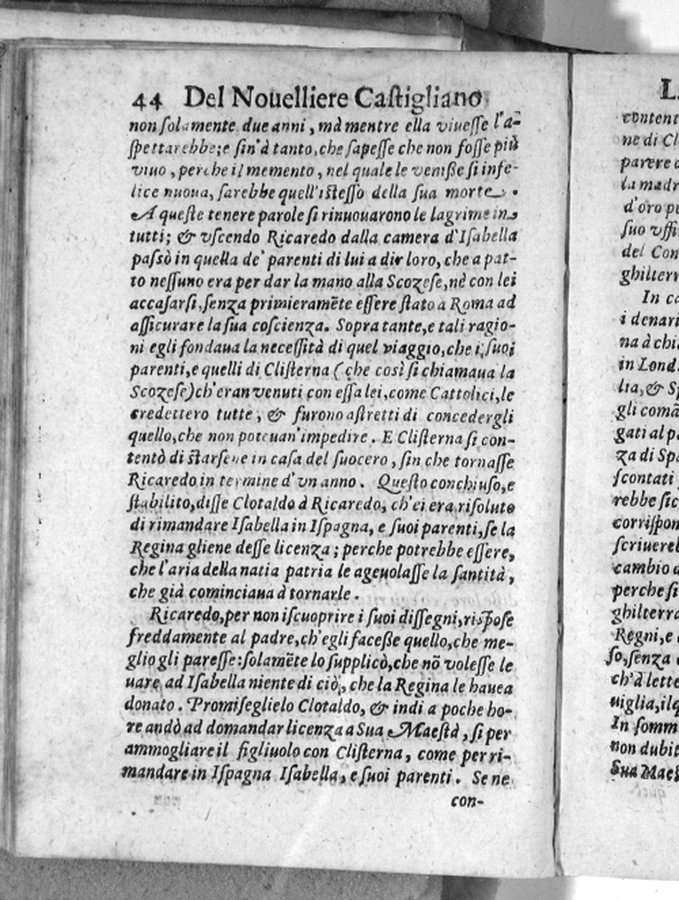 44 Del Nouelliere Castigliano
non ſolamente due anni, mà mentre ella viueſſe l'a-
ſpettarebbe; e ſin'à tanto, che ſapeſſe che non foſſe più
viuo, perche il memento, nel quale le veniſſe ſi infe-
lice nuoua, ſarebbe quell'iſteſſo della ſua morte.
A queſte tenere parole ſi rinuouarono le lagrime in
tutti; & vſcendo Ricaredo dalla camera d'Iſabella
paſsò in quella de' parenti di lui a dir loro, che a pat-
to neſſuno era per dar la mano alla Scozeſe, nè con lei
accaſarſi, ſenza primieramẽte eſſere ſtato a Roma ad
aſſicurare la ſua coſcienza. Sopra tante, e tali ragio-
ni egli fondaua la neceſſità di quel viaggio, che i ſuoi
parenti, e quelli di Cliſterna (che così ſi chiamaua la
Scozeſe) ch'eran venuti con eſſa lei, come Cattolici, le
credettero tutte, & furono aſtretti di concedergli
quello, che non poteuan'impedire. E Cliſterna ſi con-
tentò di ſtarſene in caſa del ſuocero, ſin che tornaſſe
Ricaredo in termine d'vn anno. Queſto conchiuſo, e
ſtabilito, diſſe Clotaldo à Ricaredo, ch'ei era riſoluto
di rimandare Iſabella in Iſpagna, e ſuoi parenti, ſe la
Regina gliene deſſe licenza; perche potrebbe eſſere,
che l'aria della natia patria le ageuolaſſe la ſantità,
che già cominciaua d tornarle.
Ricaredo, per non iſcuoprire i ſuoi diſſegni, riſpoſe
freddamente al padre, ch'egli faceſſe quello, che me-
glio gli pareſſe: ſolamẽte lo ſupplicò, che nõ voleſſe le
uare ad Iſabella niente di ciò, che la Regina le hauea
donato. Promiſeglielo Clotaldo, & indi a poche ho-
re andò ad domandar licenza a Sua Maeſtà, ſi per
ammogliare il figliuolo con Cliſterna, come per ri-
mandare in Iſpagna Iſabella, e ſuoi parenti. Se ne
con-
L
content
ne di Cl
parere
la madr
d'oro pe
ſuo vffi
del Con
ghilterr
In ca
i denari
na à chi
in Lond
lia, & Sp
gli comã
gati al p
za di Spa
ſcontati
rebbe ſic
corriſpon
ſcriuerel
cambio
perche ſi
ghilterra
Regni, e
ſo, ſenza
ch'à lette
uiglia, il q
In ſomm
non dubit
Sua Maeſ